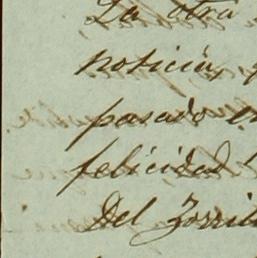 La otra
noticia,
pasado
felicidad
Del Zorril